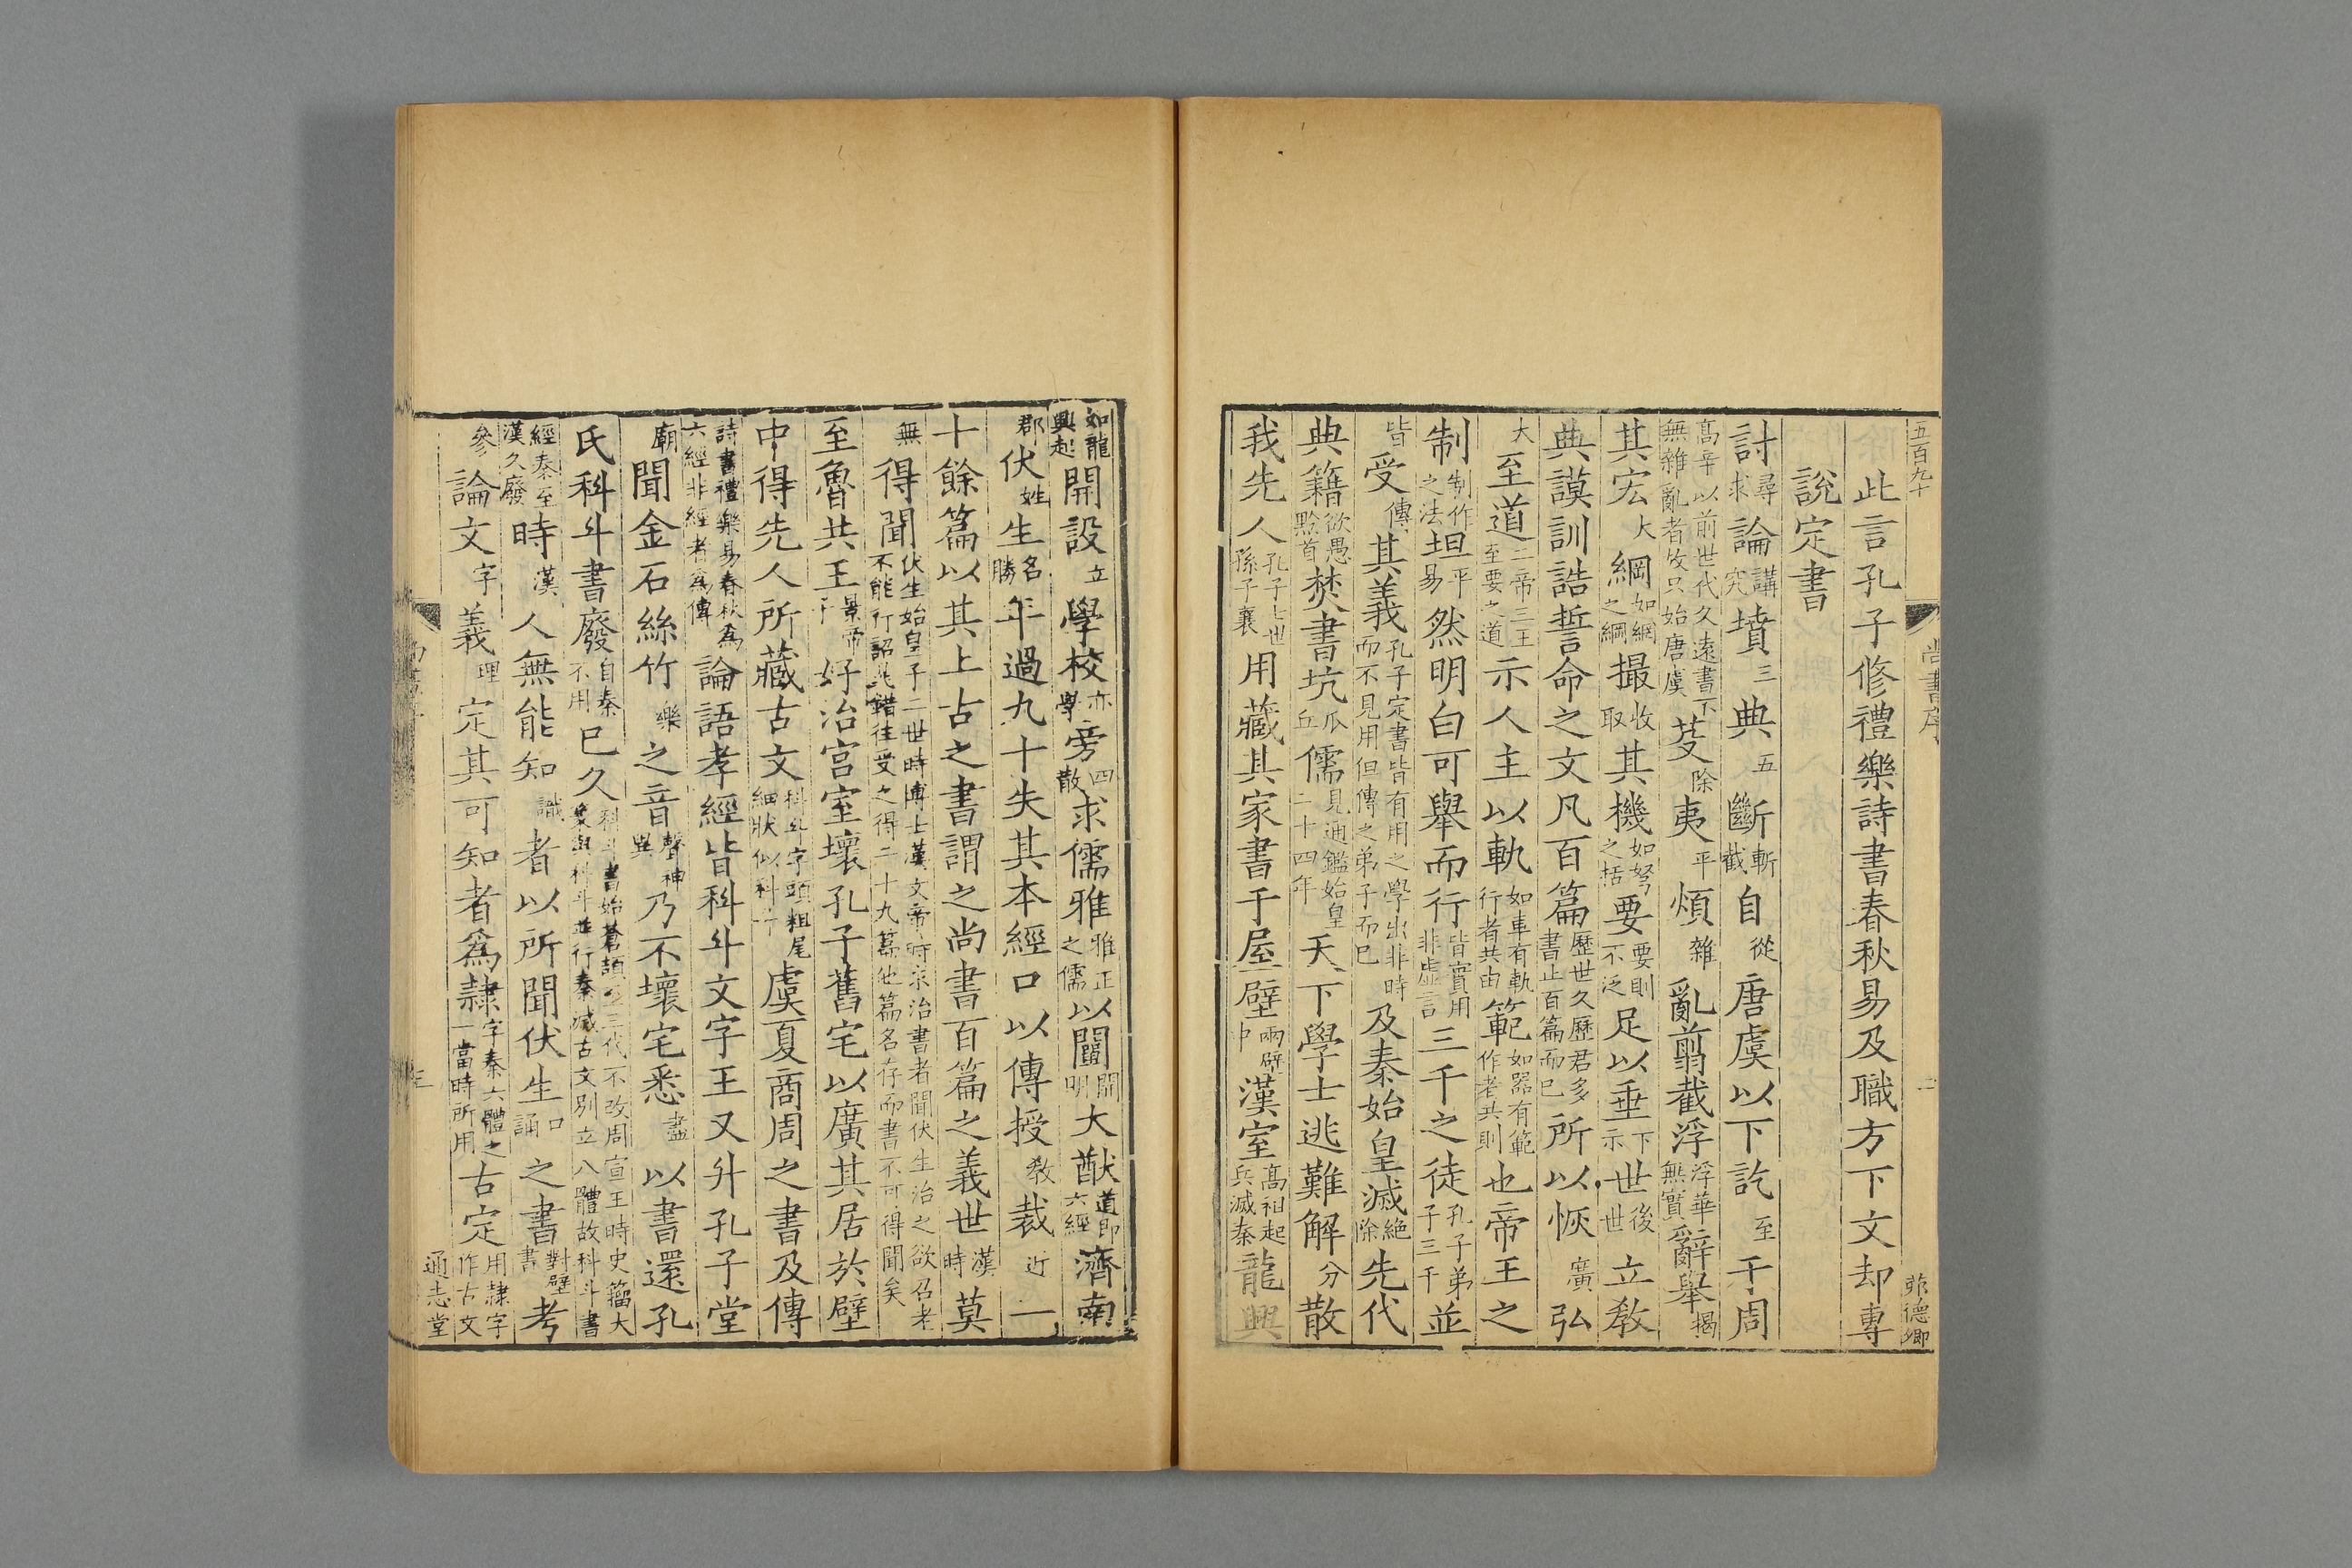 五百九十 尚書序 二 茆德卿
此言孔子修禮樂詩書春秋易及職方下文却專
說定書
討尋求論講究墳三典五斷斬截自從唐虞以下訖至于周
高辛以前世代久遠書下無雜亂者故只始唐虞芟除夷平煩雜亂翦截浮浮華無實辭舉揭
其宏大綱如網之綱撮收取其機如弩之括要要則不泛足以垂下示世後世立教
典謨訓誥誓命之文凡百篇歷世久歷君多書止百篇而已所以恢廣弘
大至道二帝三王至要之道示人主以軌如車有軌行者共由範如器有範作者共則也帝王之
制制作之法坦平易然明白可舉而行皆實用非虛言三千之徒孔子弟子三千並
皆受傳其義孔子定書皆有用之學出非時而不見用但傳之弟子而已及秦始皇滅絕除先代
典籍欲愚黔首焚書坑瓜丘儒見通鑑始皇三十四年天下學士逃難解分散
我先人孔子七世孫子襄用藏其家書于屋壁兩壁中漢室高祖起兵滅秦龍興
如龍興起開設立學校亦學旁四散求儒雅雅正之儒以闡開明大猷道即六經濟南
郡伏姓生名勝年過九十失其本經口以傳授教裁近二
十餘篇以其上古之書謂之尚書百篇之義世漢時莫
無得聞伏生始皇子二世時博士漢文帝時求治書者聞伏生治之欲召老不能行詔晁錯往受之得二十九篇他篇名存而書不可得聞矣
至魯共王景帝子好治宮室壞孔子舊宅以廣其居於壁
中得先人所藏古文科斗字頭粗尾細狀似科斗虞夏商周之書及傳
詩書禮樂易春秋為六經非經者為傳論語孝經皆科斗文字王又升孔子堂
廟聞金石絲竹樂之音聲神異乃不壞宅悉盡以書還孔
氏科斗書廢自秦不用已久科斗書始蒼頡三代不改周宣王時史籀大篆與科斗並行秦滅古文別立八體故科斗書
經秦至漢久廢時漢人無能知識者以所聞伏生口誦之書對壁書考
參論文字義理定其可知者為隸字秦六體之一當時所用古定用隸字作古文
三 通志堂